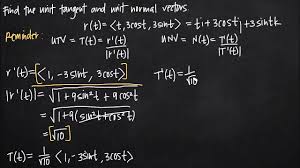 Find the unit tangent and unit normal vectors.
r(t) = ⟨t, 3cost, 3sint⟩ = ti + 3costj + 3sintk
Reminder: UTV = T(t) = r'(t) / |r'(t)| UNV = N(t) = T'(t) / |T'(t)|
r'(t) = ⟨1, -3sint, 3cost⟩
T'(t) = 1/√10
|r'(t)| = √(1 + 9sin²t + 9cos²t)
= √(1 + 9(sin²t + cos²t))
= √10
T(t) = 1/√10 ⟨1, -3sint, 3cost⟩